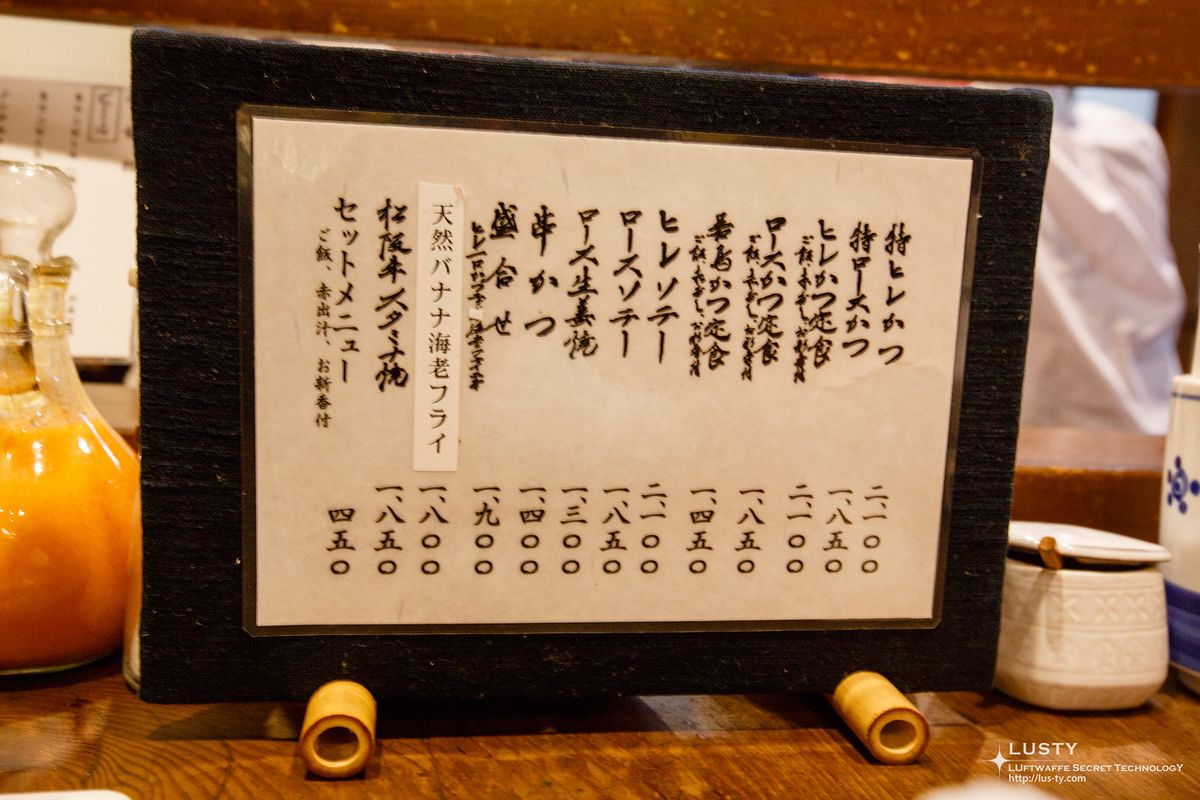 特ヒレかつ 二、一〇〇
特ロースかつ 一、八五〇
ヒレかつ定食 二、一〇〇
ご飯、赤だし、お新香付
ロースかつ定食 一、八五〇
ご飯、赤だし、お新香付
若鳥かつ定食 一、四五〇
ご飯、赤だし、お新香付
ヒレソテー 二、一〇〇
ロースソテー 一、八五〇
ロース生姜焼 一、三〇〇
串かつ 一、四〇〇
盛合せ 一、九〇〇
天然バナナ海老フライ 一、八〇〇
松阪牛スタミナ焼 一、八五〇
セットメニュー 四五〇
ご飯、赤出汁、お新香付
LUSTY
LUFTWAFFE SECRET TECHNOLOGY
http://lus-ty.com